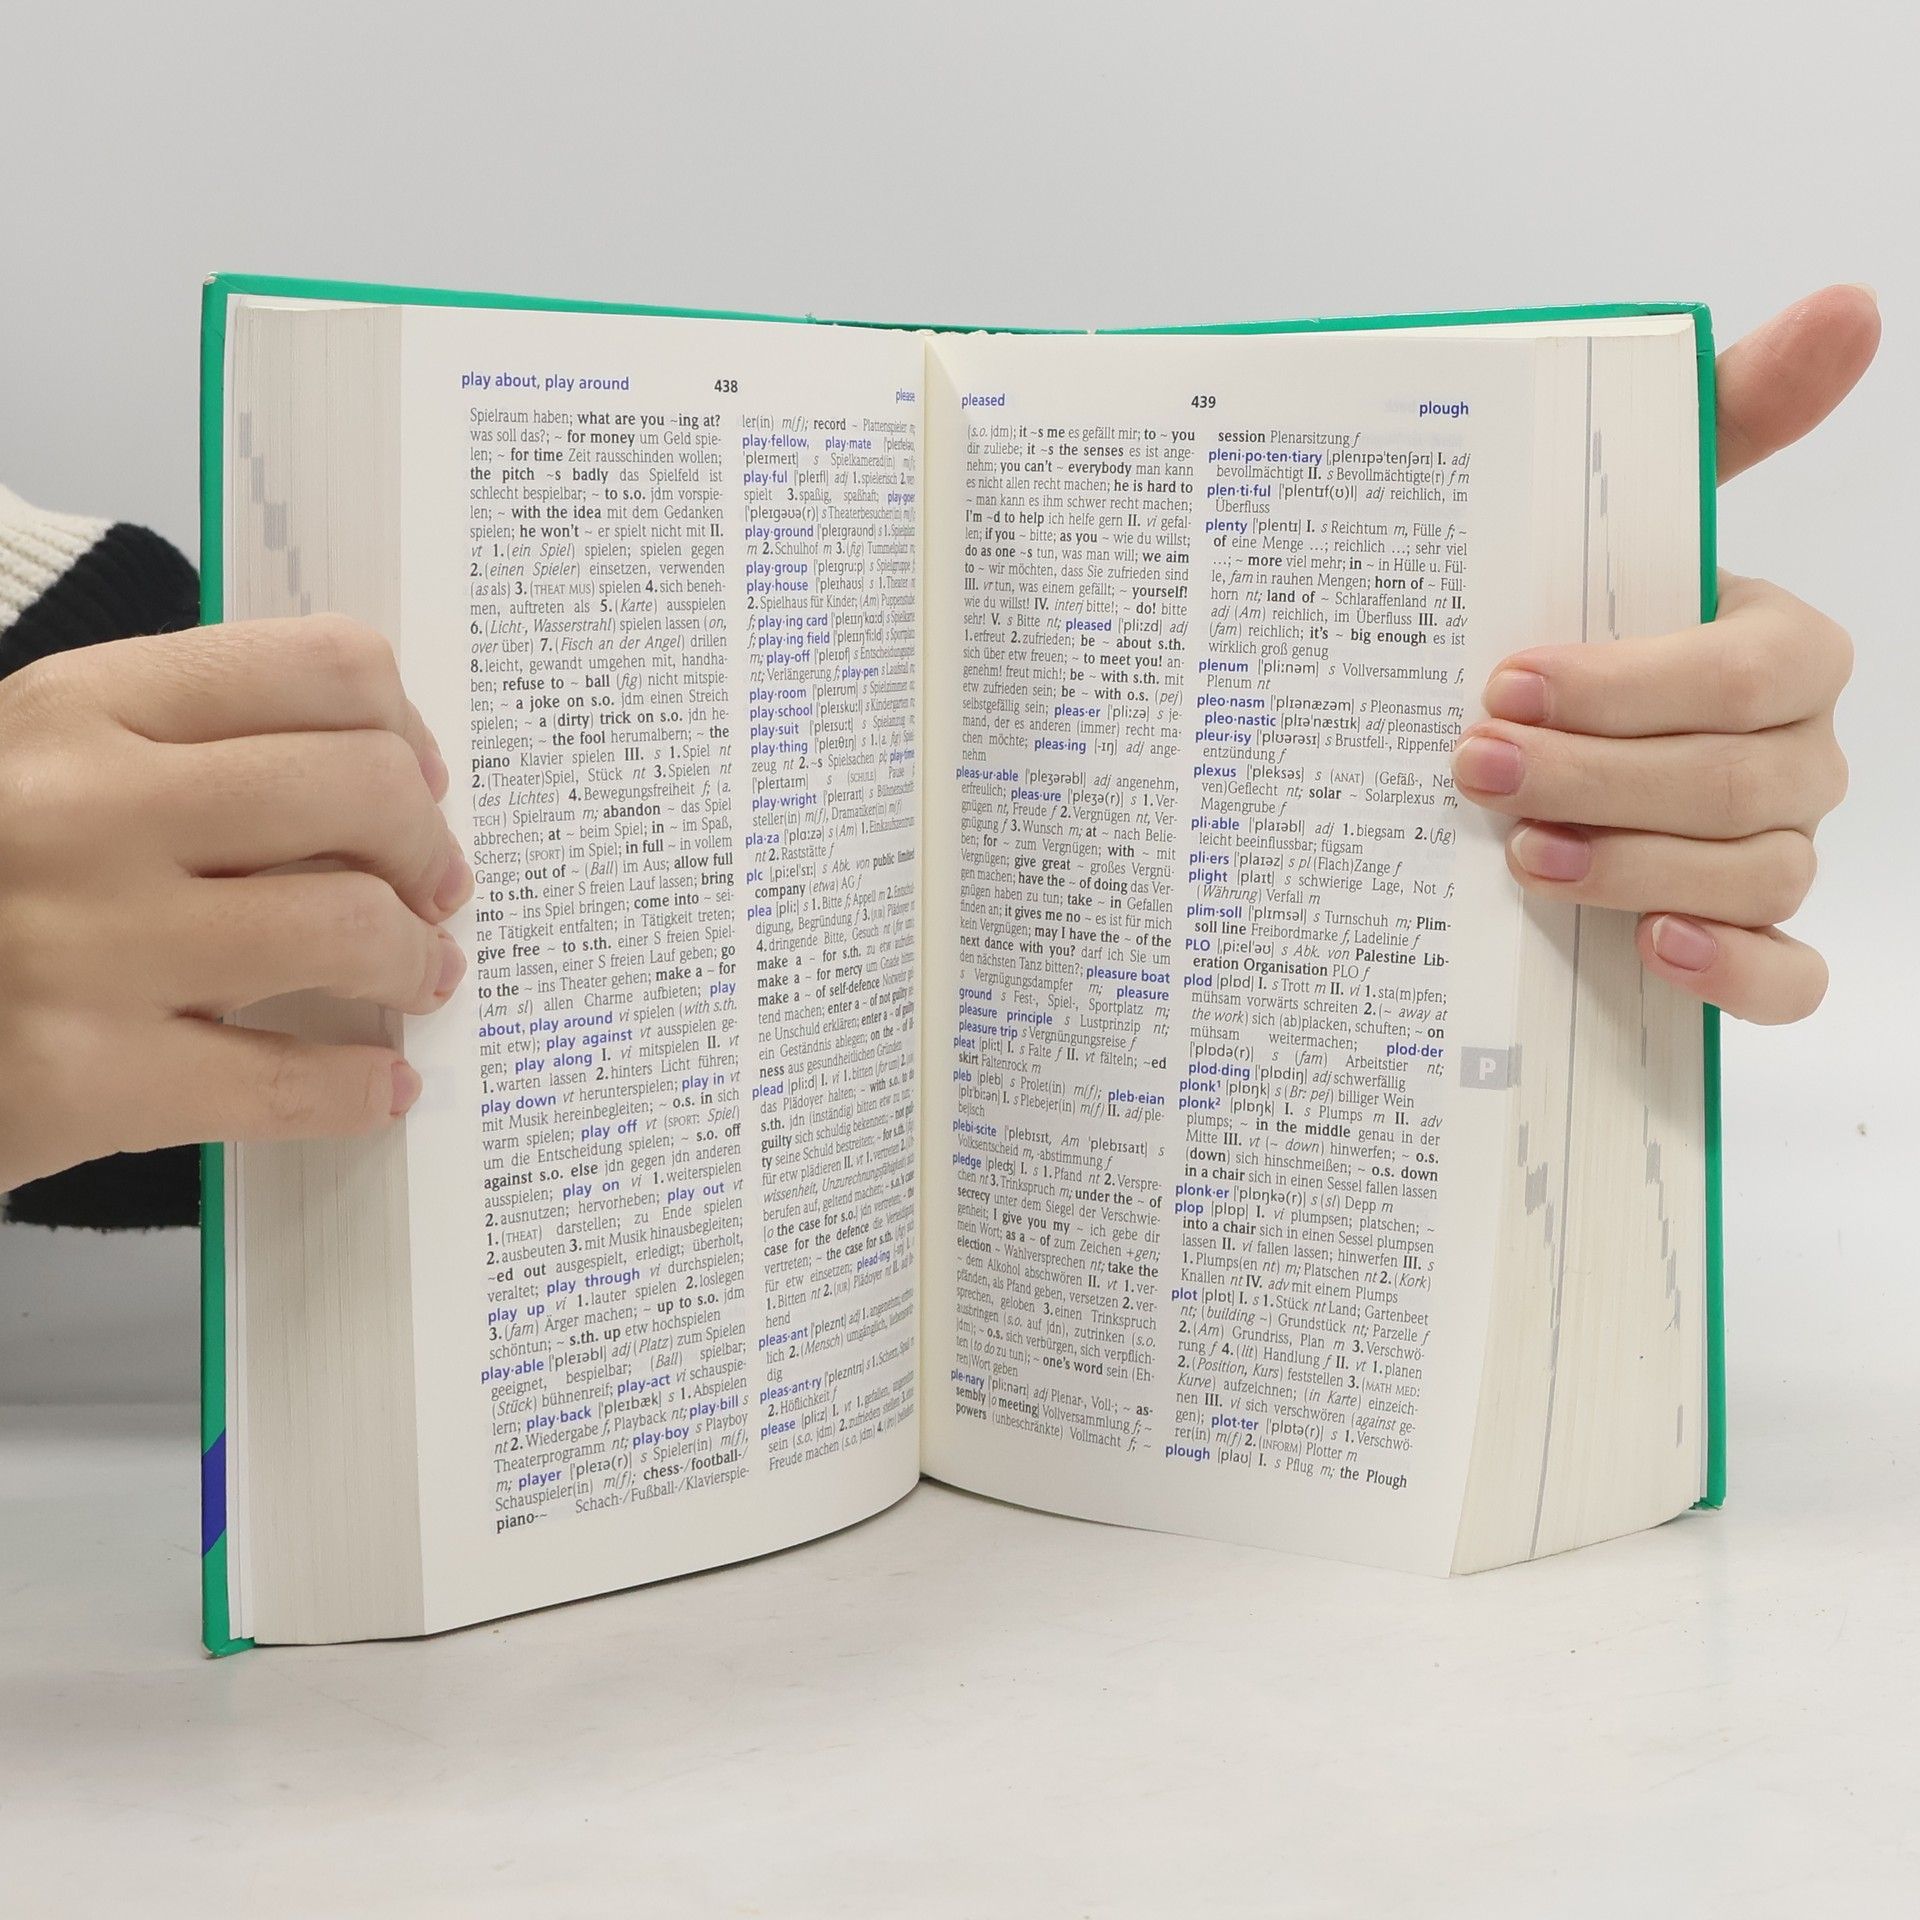 play about, play around 438 please
Spielraum haben; what are you ~ing at?
was soll das?; ~ for money um Geld spie-
len; ~ for time Zeit rausschinden wollen;
the pitch ~s badly das Spielfeld ist
schlecht bespielbar; ~ to s.o. jdm vorspie-
len; ~ with the idea mit dem Gedanken
spielen; he won't ~ er spielt nicht mit II.
vt 1. (ein Spiel) spielen; spielen gegen
2. (einen Spieler) einsetzen, verwenden
(as als) 3. (THEAT MUS) spielen 4. sich beneh-
men, auftreten als 5. (Karte) ausspielen
6. (Licht-, Wasserstrahl) spielen lassen (on,
over über) 7. (Fisch an der Angel) drillen
8. leicht, gewandt umgehen mit, handha-
ben; refuse to ~ ball (fig) nicht mitspie-
len; ~ a joke on s.o. jdm einen Streich
spielen; ~ a (dirty) trick on s.o. jdn he-
reinlegen; ~ the fool herumalbern; ~ the
piano Klavier spielen III. s 1. Spiel nt
2. (Theater)Spiel, Stück nt 3. Spielen nt
(des Lichtes) 4. Bewegungsfreiheit f; (a.
TECH) Spielraum m; abandon ~ das Spiel
abbrechen; at ~ beim Spiel; in ~ im Spaß,
Scherz; (SPORT) im Spiel; in full ~ in vollem
Gange; out of ~ (Ball) im Aus; allow full
~ to s.th. einer S freien Lauf lassen; bring
into ~ ins Spiel bringen; come into ~ sei-
ne Tätigkeit entfalten; in Tätigkeit treten;
give free ~ to s.th. einer S freien Spiel-
raum lassen, einer S freien Lauf geben; go
to the ~ ins Theater gehen; make a ~ for
(Am sl) allen Charme aufbieten; play
about, play around vi spielen (with s.th.
mit etw); play against vt ausspielen ge-
gen; play along I. vi mitspielen II. vt
1. warten lassen 2. hinters Licht führen;
play down vt herunterspielen; play in vt
mit Musik hereinbegleiten; ~ o.s. in sich
warm spielen; play off vt (SPORT: Spiel)
um die Entscheidung spielen; ~ s.o. off
against s.o. else jdn gegen jdn anderen
ausspielen; play on vi 1. weiterspielen
2. ausnutzen; hervorheben; play out vt
1. (THEAT) darstellen; zu Ende spielen
2. ausbeuten 3. mit Musik hinausbegleiten;
~ed out ausgespielt, erledigt; überholt,
veraltet; play through vi durchspielen;
play up vi 1. lauter spielen 2. loslegen
3. (fam) Ärger machen; ~ up to s.o. jdm
schöntun; ~ s.th. up etw hochspielen
play·able ['pleɪəbl] adj (Platz) zum Spielen
geeignet, bespielbar; (Ball) spielbar;
(Stück) bühnenreif; play-act vi schauspie-
lern; play·back ['pleɪbæk] s 1. Abspielen
nt 2. Wiedergabe f, Playback nt; play·bill s
Theaterprogramm nt; play·boy s Playboy
m; player ['pleɪə(r)] s Spieler(in) m(f),
Schauspieler(in) m(f); chess-/football-/
piano-~ Schach-/Fußball-/Klavierspie-
ler(in) m(f); record ~ Plattenspieler m;
play·fellow, play·mate ['pleɪfeləʊ,
'pleɪmeɪt] s Spielkamerad(in) m(f);
play·ful ['pleɪfl] adj 1. spielerisch 2. ver-
spielt 3. spaßig, spaßhaft; play·goer
['pleɪgəʊə(r)] s Theaterbesucher(in) m(f);
play·ground ['pleɪgraʊnd] s 1. Spielplatz
m 2. Schulhof m 3. (fig) Tummelplatz m;
play·group ['pleɪgru:p] s Spielgruppe f;
play·house ['pleɪhaʊs] s 1. Theater nt
2. Spielhaus für Kinder; (Am) Puppenstube
f; play·ing card ['pleɪɪŋ'kɑ:d] s Spielkarte
f; play·ing field ['pleɪɪŋ'fi:ld] s Sportplatz
m; play-off ['pleɪɒf] s Entscheidungsspiel
nt; Verlängerung f; play·pen s Laufstall m;
play·room ['pleɪrʊm] s Spielzimmer nt;
play·school ['pleɪsku:l] s Kindergarten m;
play·suit ['pleɪsu:t] s Spielanzug m;
play·thing ['pleɪθɪŋ] s 1. (a. fig) Spiel-
zeug nt 2. ~s Spielsachen pl; play·time
['pleɪtaɪm] s (SCHULE) Pause f;
play·wright ['pleɪraɪt] s Bühnenschrift-
steller(in) m(f), Dramatiker(in) m(f)
pla·za ['plɑ:zə] s (Am) 1. Einkaufszentrum
nt 2. Raststätte f
plc [ˌpi:el'si:] s Abk. von public limited
company (etwa) AG f
plea [pli:] s 1. Bitte f; Appell m 2. Entschul-
digung, Begründung f 3. (JUR) Plädoyer nt
4. dringende Bitte, Gesuch nt (for um);
make a ~ for s.th. zu etw aufrufen;
make a ~ for mercy um Gnade bitten;
make a ~ of self-defence Notwehr gel-
tend machen; enter a ~ of not guilty sei-
ne Unschuld erklären; enter a ~ of guilty
ein Geständnis ablegen; on the ~ of ill-
ness aus gesundheitlichen Gründen
plead [pli:d] I. vi 1. bitten (for um) 2. (JUR)
das Plädoyer halten; ~ with s.o. to do
s.th. jdn (inständig) bitten etw zu tun; ~
guilty sich schuldig bekennen; ~ not guil-
ty seine Schuld bestreiten; ~ for s.th.
für etw plädieren II. vt 1. vertreten 2. (Un-
wissenheit, Unzurechnungsfähigkeit) sich
berufen auf, geltend machen; ~ s.o.'s case
[o the case for s.o.] jdn vertreten; ~ the
case for the defence die Verteidigung
vertreten; ~ the case for s.th. (fig) sich
für etw einsetzen; plead·ing [-ɪŋ] I. s
1. Bitten nt 2. (JUR) Plädoyer nt II. adj fle-
hend
pleas·ant ['pleznt] adj 1. angenehm; erfreu-
lich 2. (Mensch) umgänglich, liebenswür-
dig
pleas·ant·ry ['plezntrɪ] s 1. Scherz, Spaß m
2. Höflichkeit f
please [pli:z] I. vt 1. gefallen, angenehm
sein (s.o. jdm) 2. zufrieden stellen 3. eine
Freude machen (s.o. jdm) 4. (to) belieben
pleased 439 plough
(s.o. jdm); it ~s me es gefällt mir; to ~ you
dir zuliebe; it ~s the senses es ist ange-
nehm; you can't ~ everybody man kann
es nicht allen recht machen; he is hard to
~ man kann es ihm schwer recht machen;
I'm ~d to help ich helfe gern II. vi gefal-
len; if you ~ bitte; as you ~ wie du willst;
do as one ~s tun, was man will; we aim
to ~ wir möchten, dass Sie zufrieden sind
III. vr tun, was einem gefällt; ~ yourself!
wie du willst! IV. interj bitte!; ~ do! bitte
sehr! V. s Bitte nt; pleased [pli:zd] adj
1. erfreut 2. zufrieden; be ~ about s.th.
sich über etw freuen; ~ to meet you! an-
genehm! freut mich!; be ~ with s.th. mit
etw zufrieden sein; be ~ with o.s. (pej)
selbstgefällig sein; pleas·er ['pli:zə] s je-
mand, der es anderen (immer) recht ma-
chen möchte; pleas·ing [-ɪŋ] adj ange-
nehm
pleas·ur·able ['pleʒərəbl] adj angenehm,
erfreulich; pleas·ure ['pleʒə(r)] s 1. Ver-
gnügen nt, Freude f 2. Vergnügen nt, Ver-
gnügung f 3. Wunsch m; at ~ nach Belie-
ben; for ~ zum Vergnügen; with ~ mit
Vergnügen; give great ~ großes Vergnü-
gen machen; have the ~ of doing das Ver-
gnügen haben zu tun; take ~ in Gefallen
finden an; it gives me no ~ es ist für mich
kein Vergnügen; may I have the ~ of the
next dance with you? darf ich Sie um
den nächsten Tanz bitten?; pleasure boat
s Vergnügungsdampfer m; pleasure
ground s Fest-, Spiel-, Sportplatz m;
pleasure principle s Lustprinzip nt;
pleasure trip s Vergnügungsreise f
pleat [pli:t] I. s Falte f II. vt fälteln; ~ed
skirt Faltenrock m
pleb [pleb] s Prolet(in) m(f); pleb·eian
[plɪ'bi:ən] I. s Plebejer(in) m(f) II. adj ple-
bejisch
plebi·scite ['plebɪsɪt, Am 'plebɪsaɪt] s
Volksentscheid m, -abstimmung f
pledge [pledʒ] I. s 1. Pfand nt 2. Verspre-
chen nt 3. Trinkspruch m; under the ~ of
secrecy unter dem Siegel der Verschwie-
genheit; I give you my ~ ich gebe dir
mein Wort; as a ~ of zum Zeichen +gen;
election ~ Wahlversprechen nt; take the
~ dem Alkohol abschwören II. vt 1. ver-
pfänden, als Pfand geben, versetzen 2. ver-
sprechen, geloben 3. einen Trinkspruch
ausbringen (s.o. auf jdn), zutrinken (s.o.
jdm); ~ o.s. sich verbürgen, sich verpflich-
ten (to do zu tun); ~ one's word sein (Eh-
ren)Wort geben
ple·nary ['pli:nərɪ] adj Plenar-, Voll-; ~ as-
sembly [o meeting] Vollversammlung f; ~
powers (unbeschränkte) Vollmacht f; ~
session Plenarsitzung f
pleni·po·ten·tiary [ˌplenɪpə'tenʃərɪ] I. adj
bevollmächtigt II. s Bevollmächtigte(r) f m
plen·ti·ful ['plentɪf(ʊ)l] adj reichlich, im
Überfluss
plenty ['plentɪ] I. s Reichtum m, Fülle f; ~
of eine Menge ...; reichlich ...; sehr viel
...; ~ more viel mehr; in ~ in Hülle u. Fül-
le, fam in rauhen Mengen; horn of ~ Füll-
horn nt; land of ~ Schlaraffenland nt II.
adj (Am) reichlich, im Überfluss III. adv
(fam) reichlich; it's ~ big enough es ist
wirklich groß genug
plenum ['pli:nəm] s Vollversammlung f,
Plenum nt
pleo·nasm ['plɪənæzəm] s Pleonasmus m;
pleo·nastic [plɪə'næstɪk] adj pleonastisch
pleur·isy ['plʊərəsɪ] s Brustfell-, Rippenfell
entzündung f
plexus ['pleksəs] s (ANAT) (Gefäß-, Ner
ven)Geflecht nt; solar ~ Solarplexus m,
Magengrube f
pli·able ['plaɪəbl] adj 1. biegsam 2. (fig)
leicht beeinflussbar; fügsam
pli·ers ['plaɪəz] s pl (Flach)Zange f
plight [plaɪt] s schwierige Lage, Not f;
(Währung) Verfall m
plim·soll ['plɪmsəl] s Turnschuh m; Plim-
soll line Freibordmarke f, Ladelinie f
PLO [ˌpi:el'əʊ] s Abk. von Palestine Lib-
eration Organisation PLO f
plod [plɒd] I. s Trott m II. vi 1. sta(m)pfen;
mühsam vorwärts schreiten 2. (~ away at
the work) sich (ab)placken, schuften; ~ on
mühsam weitermachen; plod·der
['plɒdə(r)] s (fam) Arbeitstier nt;
plod·ding ['plɒdɪŋ] adj schwerfällig
plonk¹ [plɒŋk] s (Br: pej) billiger Wein
plonk² [plɒŋk] I. s Plumps m II. adv
plumps; ~ in the middle genau in der
Mitte III. vt (~ down) hinwerfen; ~ o.s.
(down) sich hinschmeißen; ~ o.s. down
in a chair sich in einen Sessel fallen lassen
plonk·er ['plɒŋkə(r)] s (sl) Depp m
plop [plɒp] I. vi plumpsen; platschen; ~
into a chair sich in einen Sessel plumpsen
lassen II. vi fallen lassen; hinwerfen III. s
1. Plumps(en nt) m; Platschen nt 2. (Kork)
Knallen nt IV. adv mit einem Plumps
plot [plɒt] I. s 1. Stück nt Land; Gartenbeet
nt; (building ~) Grundstück nt; Parzelle f
2. (Am) Grundriss, Plan m 3. Verschwö-
rung f 4. (lit) Handlung f II. vt 1. planen
2. (Position, Kurs) feststellen 3. (MATH MED:
Kurve) aufzeichnen; (in Karte) einzeich-
nen III. vi sich verschwören (against ge-
gen); plot·ter ['plɒtə(r)] s 1. Verschwö-
rer(in) m(f) 2. (INFORM) Plotter m
plough [plaʊ] I. s Pflug m; the Plough
P